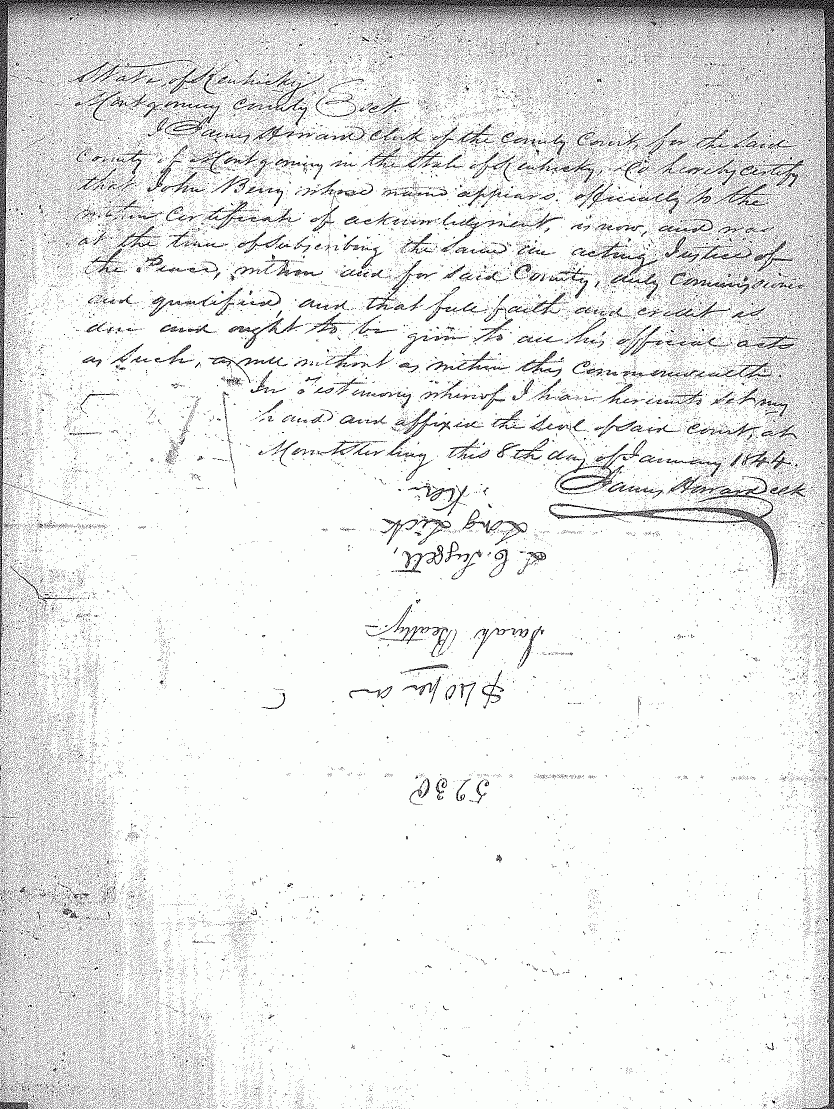 State of Kentucky
Montgomery County Sct.
I James Howard Clerk of the County Court, for the said
County of Montgomery in the State of Kentucky, do hereby certify
that John Berry whose name appears officially to the
within Certificate of acknowledgment, is now, and was
at the time of subscribing the same an acting Justice of
the Peace, within and for said County, duly Commissioned
and qualified and that full faith and credit is
due and ought to be given to all his official acts
as such, as well without as within this Commonwealth.
In Testimony whereof I have hereunto set my
hand and affixed the seal of said court, at
Mountsterling this 8th day of January 1844.
James Howard clk
5230
$40 per an
Sarah Beatty
Long Lick